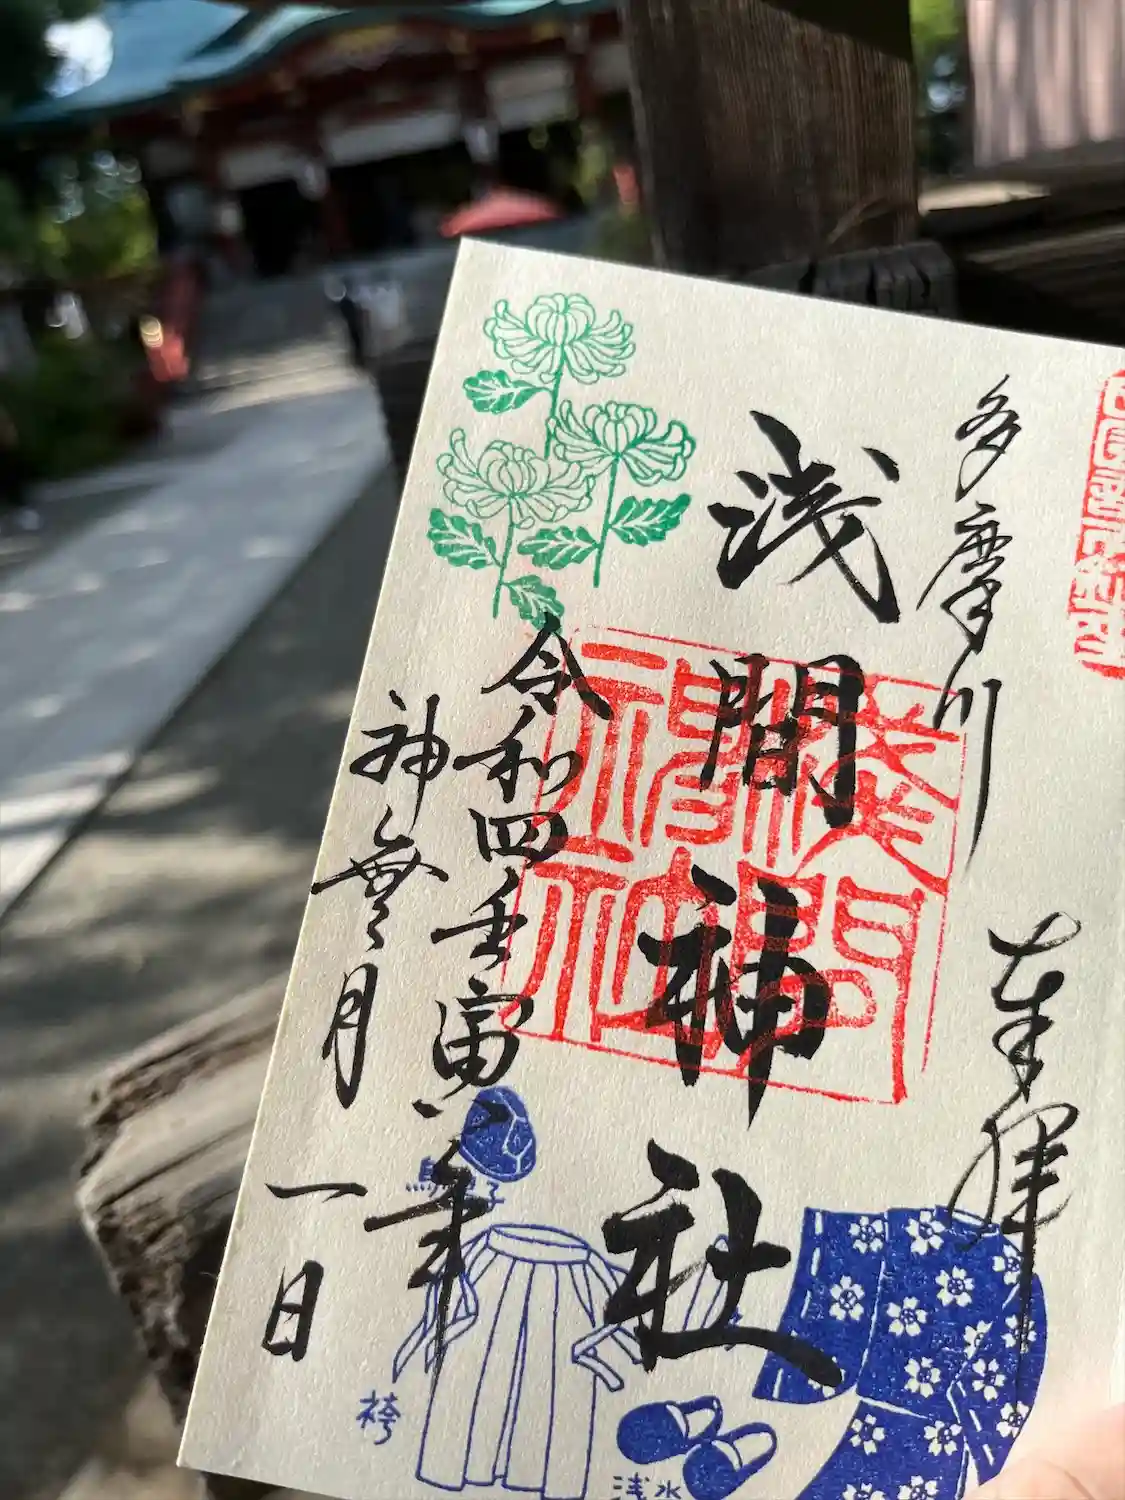 多摩川
奉拝
浅間神社
令和四壬寅年
神無月
一日
袴
浅水